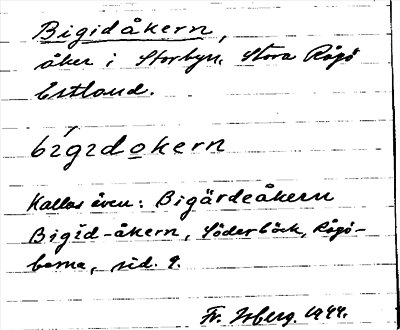 Bigidåkern,
åker i Storbyn, Stora Rågö
Estland.
bígıdokern
Kallas även: Bigärdeåkern
Bigid-åkern, Söderbäck, Rågö-
barna, sid. 9.
Fr. Isberg. 1944.